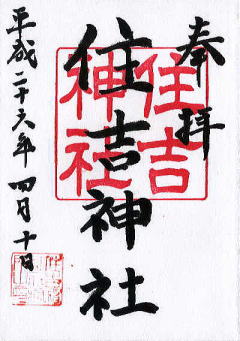 奉拝
住吉神社
住吉神社
平成二十六年四月十日